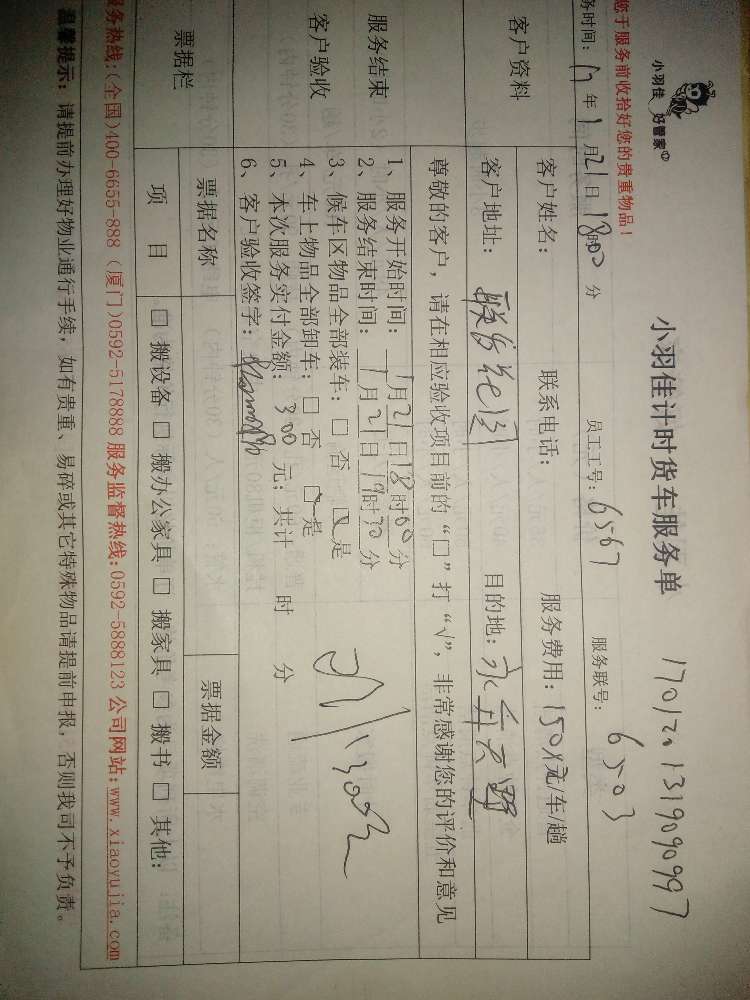 小羽佳 好管家
小羽佳计时货车服务单 170121319090997
您于服务前收拾好您的贵重物品！
务时间：17年1月21日18时00分 员工工号：6567 服务联号：6503
客户资料 客户姓名： 联系电话： 服务费用：150元/车/趟
客户地址： 目的地：
服务结束
客户验收
尊敬的客户，请在相应验收项目前的“□”打“√”，非常感谢您的评价和意见
1、服务开始时间：1月21日18时00分
2、服务结束时间：1月21日19时30分
3、候车区物品全部装车：□ 否 □ 是
4、车上物品全部卸车：□ 否 □ 是
5、本次服务实付金额：300元；共计 时 分
6、客户验收签字：
票据栏 票据名称 票据金额
项 目 □ 搬设备 □ 搬办公家具 □ 搬家具 □ 搬书 □ 其他：
服务热线：(全国)400-6655-888（厦门)0592-5178888 服务监督热线:0592-5888123 公司网站:www.xiaoyujia.com
温馨提示：请提前办理好物业通行手续，如有贵重、易碎或其它特殊物品请提前申报，否则我司不予负责。